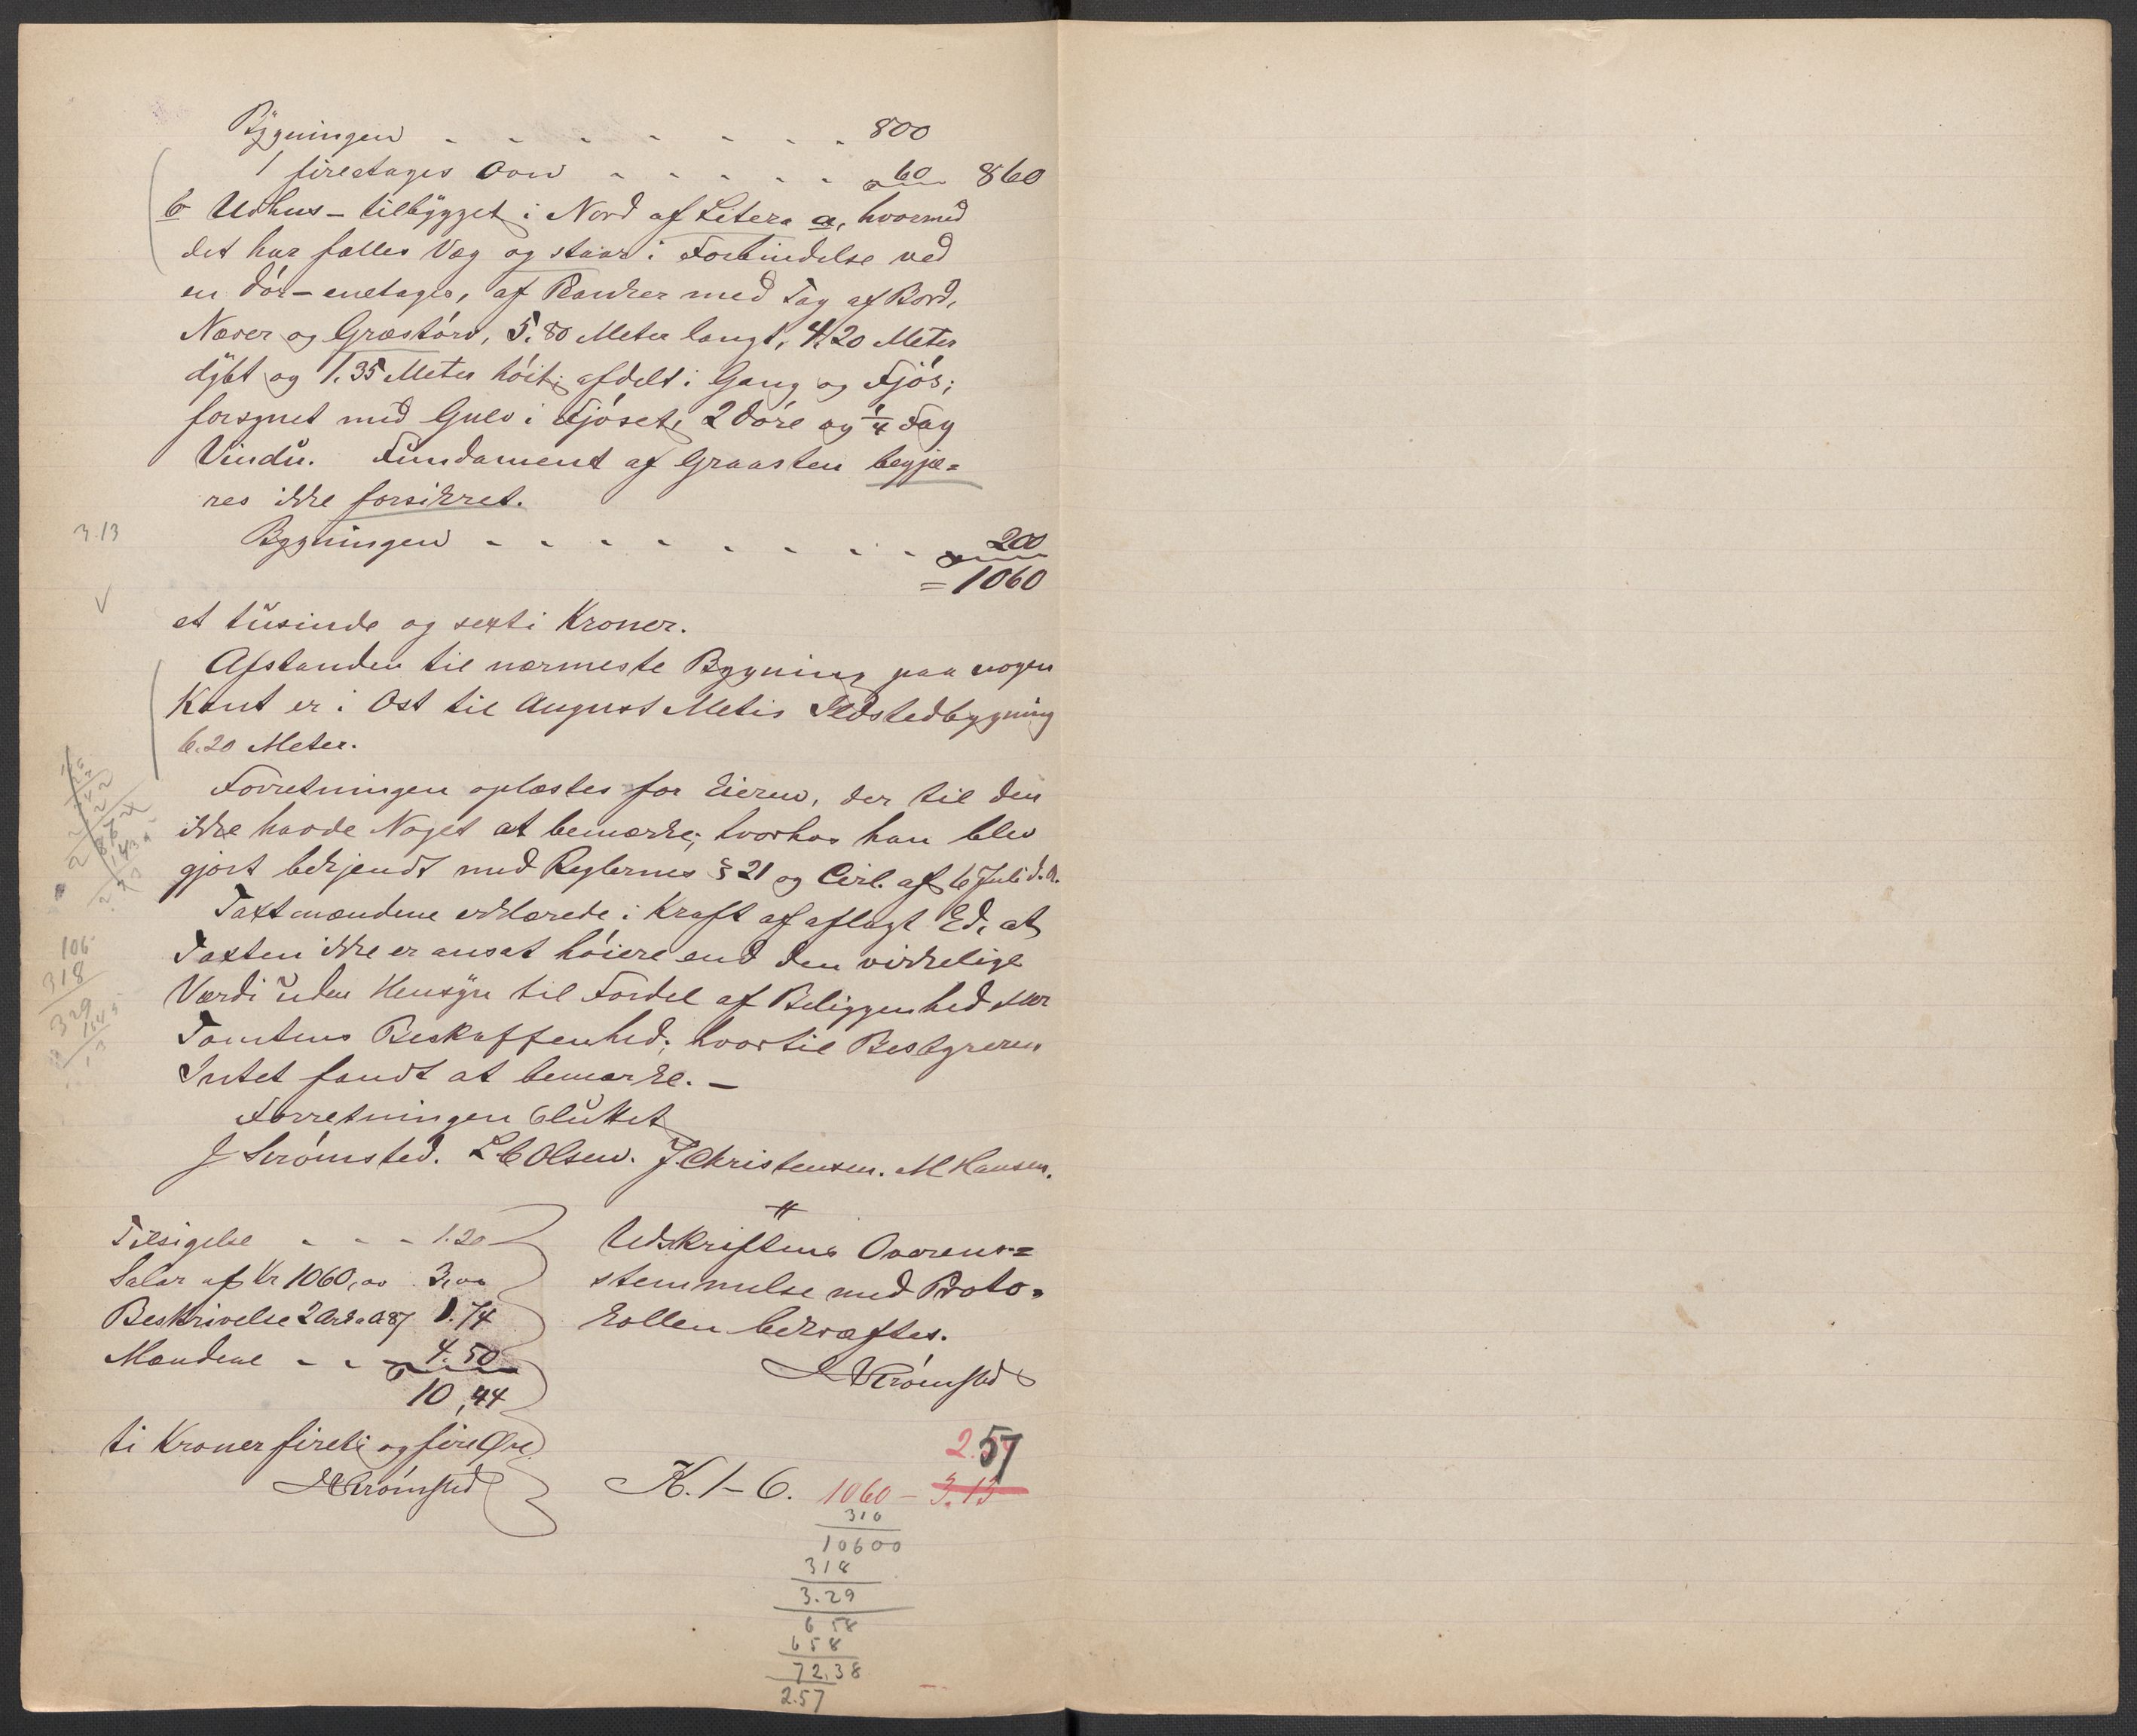 Bygningen - - - - - - - 800
1 fireetages Ovn - - - - - 60 860
b Udhus - tilbygget i Nord af Litera a, hvormed
det har fælles Væg og staar i Forbindelse ved
en Dör - enetages, af Planker med Tag af Bord,
Næver og Græstörv, 5.80 Meter langt, 4.20 Meter
dybt og 1.35 Meter höit; afdelt i Gang og Fjös;
forsynet med Gulv i Fjöset, 2 Döre og 1/4 Fag
Vindu. Fundament af Graasten begjæ=
res ikke forsikret.
3.13
Bygningen - - - - - - - - 200
= 1060
et tusinde og sexti Kroner.
Afstanden til nærmeste Bygning paa nogen
Kant er i Ost til August Metis Ildstedbygning
6.20 Meter.
Forretningen oplæstes for Eieren, der til den
ikke havde Noget at bemærke; hvorhos han blev
gjort bekjendt med Reglernes § 21 og Cirk. af 6 Juli d.A.
Taxtmændene erklærede i Kraft af aflagt Ed, at
Taxten ikke er ansat höiere end den virkelige
Værdi uden Hensyn til Fordel af Beliggenhed eller
106
318
329
Tomtens Beskaffenhed; hvortil Bestyreren
Intet fandt at bemærke. -
Forretningen sluttet
J Strömsted. L. C Olsen. J. Christensen. M Hansen.
Tilsigelse - - - 1.20
Salær af Kr 1060,00 3,00
Beskrivelse 2 Ark a 87 1.74
Mændene - - - 4.50
10,44
ti Kroner firti og fire Øre
J Strömsted
Udskriftens Overens=
stemmelse med Proto=
kollen bekræftes.
J Strömsted
2.57
K. 1-6. 1060 - 3.13
310
10600
318
3.29
658
658
72.38
2.57